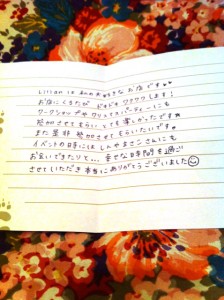 Lilian は 私の大好きな お店です♥♥
お店に くるたび ドキドキ ワクワク します!
ワークショップや クリスマスパーティーにも
参加させてもらい とても 楽しかったです
また 是非 参加させてもらいたいです♥
イベントの時には しんやまさこさんにも
お会いできたりと... 幸せな時間を過ご
させていただき 本当に ありがとうございました